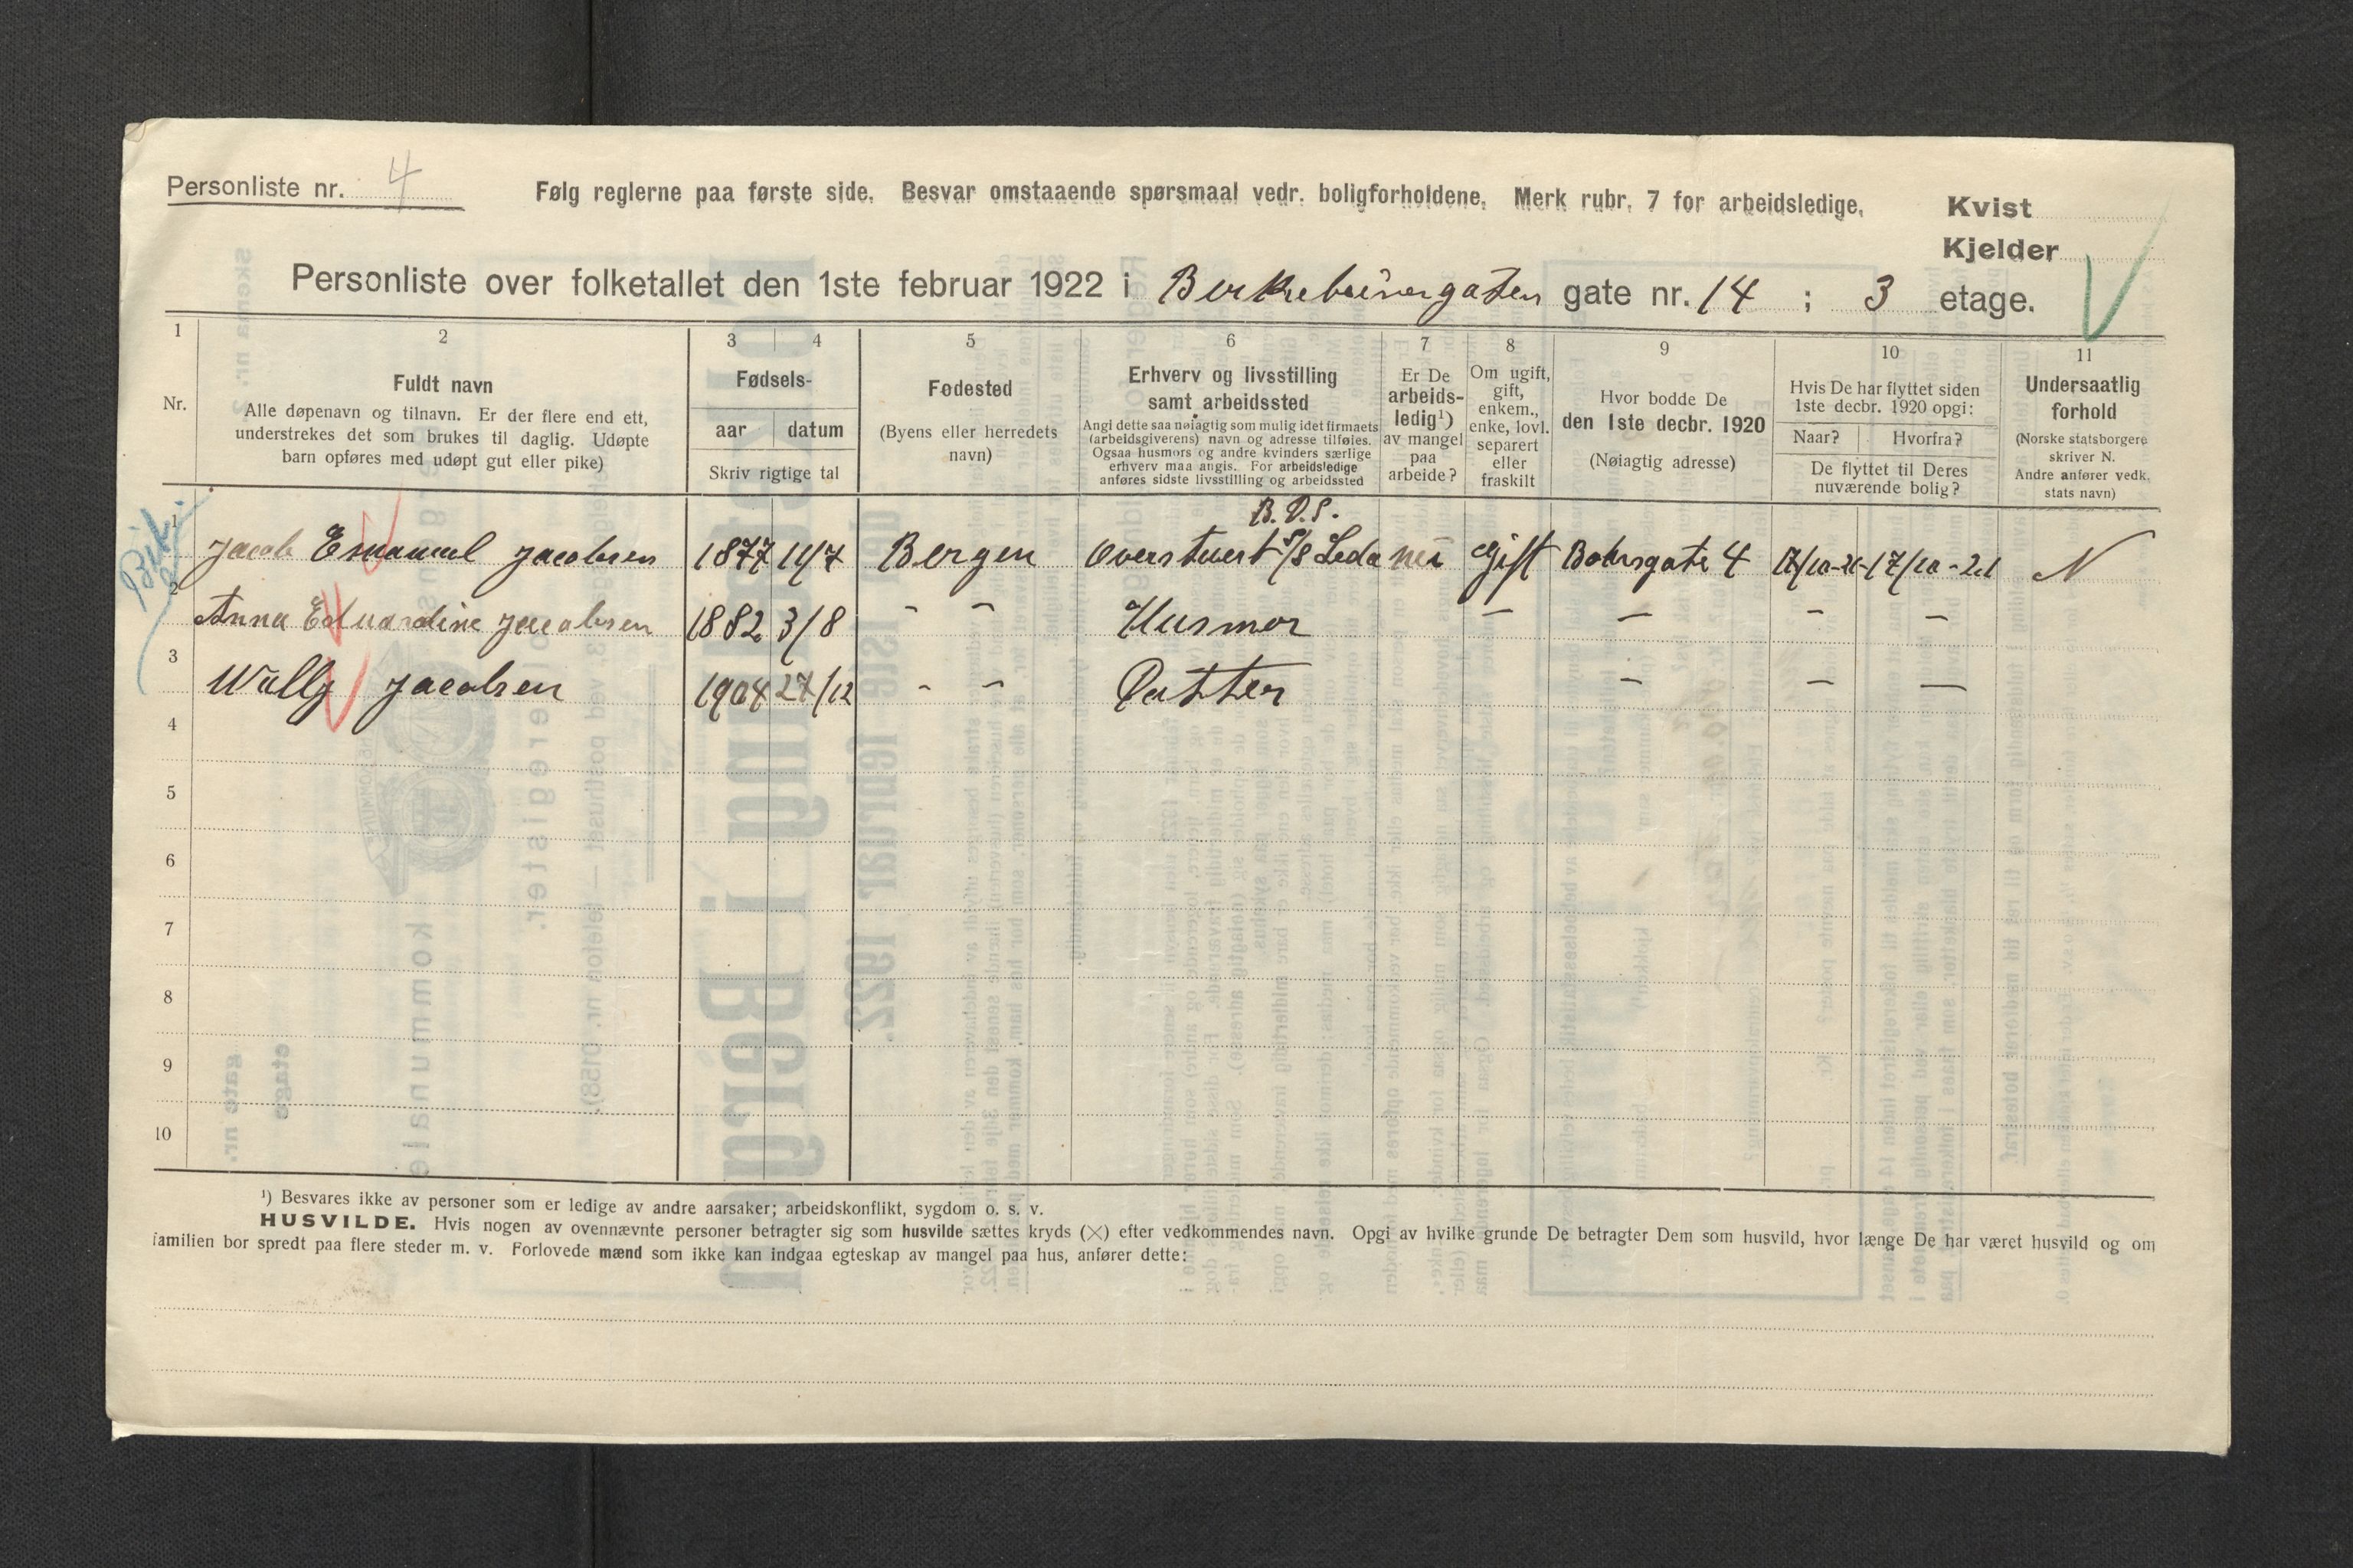 Personliste nr. 4
Følg reglerne paa første side. Besvar omstaaende spørsmaal vedr. boligforholdene. Merk rubr. 7 for arbeidsledige.
Kvist
Kjelder
Personliste over folketallet den 1ste februar 1922 i Birkebeinergaten gate nr. 14 ; 3 etage.
1 2 3 4 5 6 7 8 9 10 11
Nr.
Fuldt navn
Alle døpenavn og tilnavn. Er der flere end ett,
understrekes det som brukes til daglig. Udøpte
barn opføres med udøpt gut eller pike)
Fødsels-
aar datum
Skriv rigtige tal
Fødested
(Byens eller herredets
navn)
Erhverv og livsstilling
samt arbeidssted
Angi dette saa nøiagtig som mulig idet firmaets
(arbeidsgiverens) navn og adresse tilføies.
Ogsaa husmors og andre kvinders særlige
erhverv maa angis. For arbeidsledige
anføres sidste livsstilling og arbeidssted
Er De
arbeids-
ledig¹)
av mangel
paa
arbeide?
Om ugift,
gift,
enkem.,
enke, lovl.
separert
eller
fraskilt
Hvor bodde De
den 1ste decbr. 1920
(Nøiagtig adresse)
Hvis De har flyttet siden
1ste decbr. 1920 opgi:
Naar? Hvorfra?
De flyttet til Deres
nuværende bolig?
Undersaatlig
forhold
(Norske statsborgere
skriver N.
Andre anfører vedk.
stats navn)
B.D.S.
1 Jacob Emanuel Jacobsen 1877 14/7 Bergen Overstuert S/S Leda nei Gift Bohrsgate 4 17/10-21 17/10-21 N
2 Anna Eduardine Jacobsen 1882 3/8 - - Husmor - - - -
3 Wally Jacobsen 1904 27/12 - - Datter - - -
4
5
6
7
8
9
10
¹) Besvares ikke av personer som er ledige av andre aarsaker; arbeidskonflikt, sygdom o. s. v.
HUSVILDE. Hvis nogen av ovennævnte personer betragter sig som husvilde sættes kryds (×) efter vedkommendes navn. Opgi av hvilke grunde De betragter Dem som husvild, hvor længe De har været husvild og om
familien bor spredt paa flere steder m. v. Forlovede mænd som ikke kan indgaa egteskap av mangel paa hus, anfører dette: